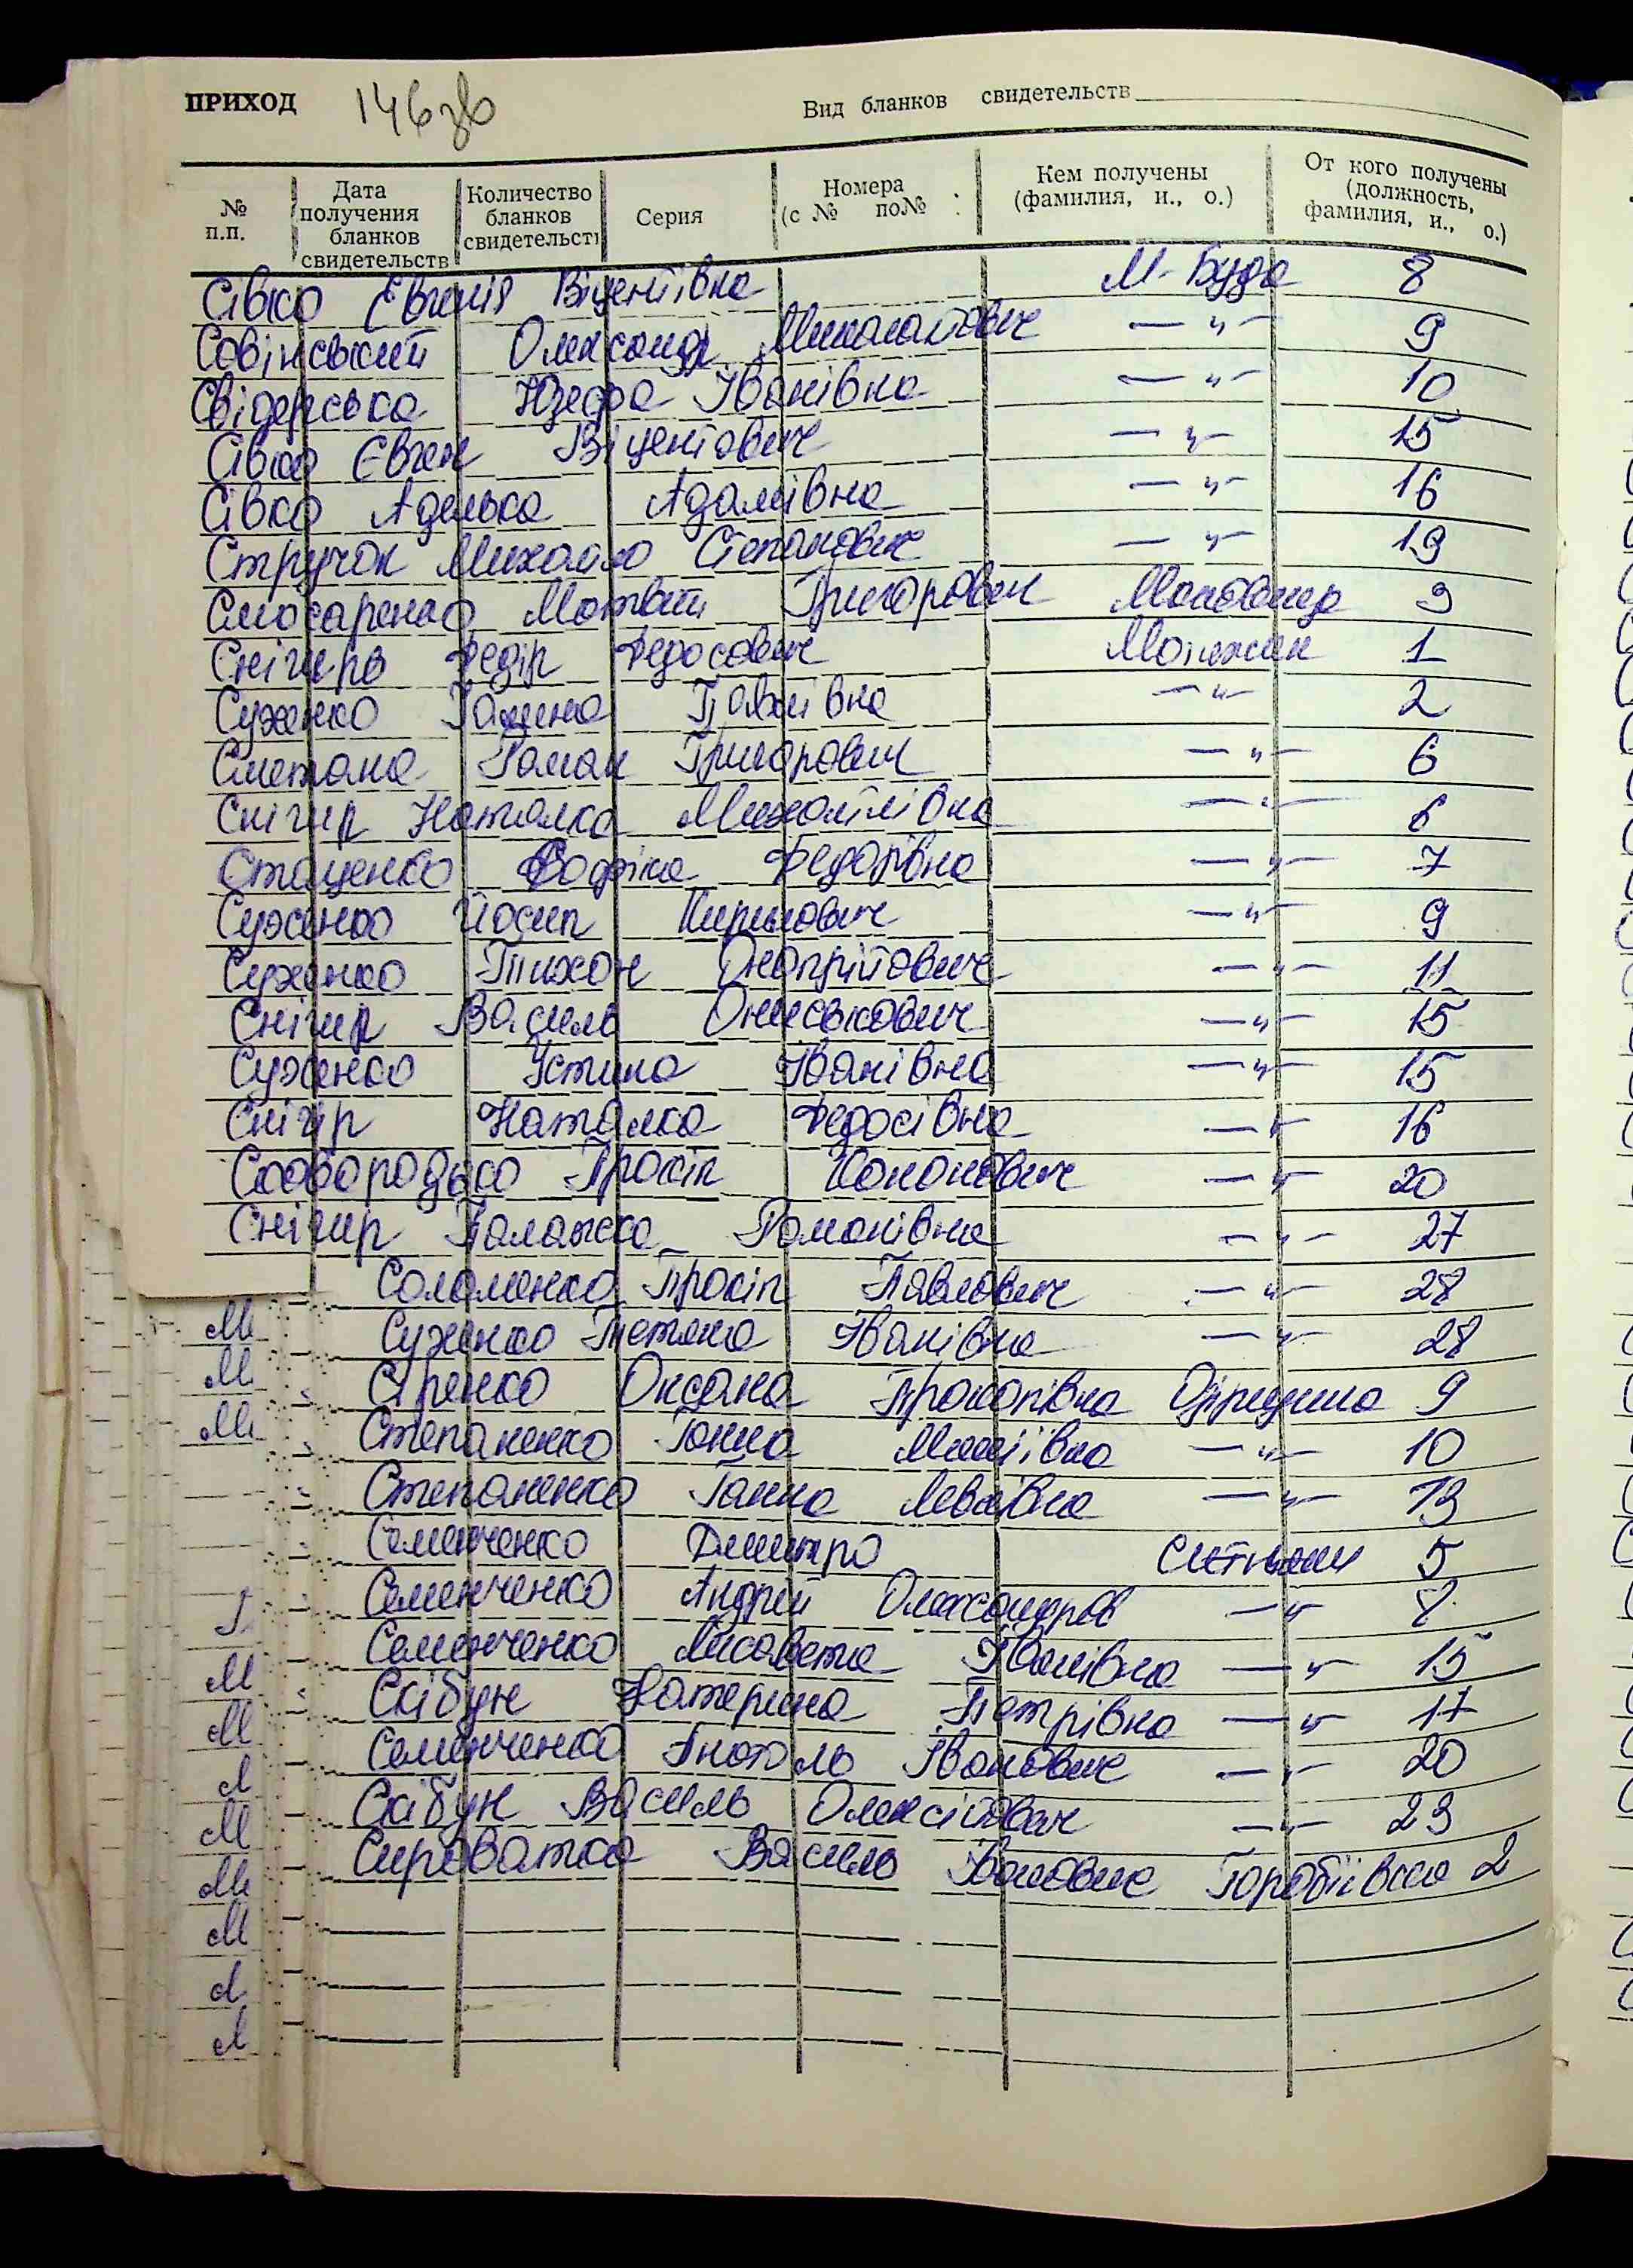 ПРИХОД 146зв Вид бланков свидетельств
№ п.п. Дата получения бланков свидетельств Количество бланков свидетельств Серия Номера (с № по№ Кем получены (фамилия, и., о.) От кого получены (должность, фамилия, и., о.)
Сівко Євгенія Віцентівна М-Буда 8
Савінський Олександр Миколайович —"— 9
Свідерська Юзефа Іванівна —"— 10
Сівко Євген Віцентович —"— 15
Сівко Аделька Адамівна —"— 16
Стручок Михайло Степанович —"— 19
Слюсаренко Мотвій Григорович Маковище 3
Снігирь Федір Федосович Мотижин 1
Суженко Галина Павлівна —"— 2
Сметана Роман Григорович —"— 6
Снігир Наталка Михайлівна —"— 6
Стаценко Софіка Федорівна —"— 7
Суженко Йосип Кирилович —"— 9
Суженко Тихон Онопрійович —"— 11
Снігир Василь Ониськович —"— 15
Суженко Устина Іванівна —"— 15
Снігір Наталка Федосівна —"— 16
Сковородько Прокіп Кононович —"— 20
Снігир Палажка Романівна —"— 27
Соломенко Прокіп Павлович —"— 28
Суженко Тетяна Іванівна —"— 28
Сіренко Оксана Прокопівна 9
Степаненко Ганна —"— 10
Степаненко Ганна Левківна —"— 13
Семенченко Дмитро Ситняки 5
Семенченко Андрій Олександров —"— 8
Семенченко Лисавета Іванівна —"— 15
Скібун Катерина Петрівна —"— 17
Семенченко Анатоль Іванович —"— 20
Скібун Василь Олексійович —"— 23
Сироватко Василь Іванович Горобіївка 2